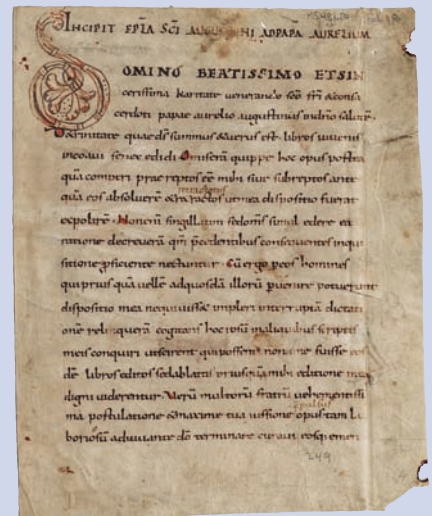 INCIPIT EPLA SCI AUGUSTINI AD PAPA AURELIUM
DOMINO BEATISSIMO ET SIN
cerissima karitate venerando sco fri & consa
cerdoti papae aurelio augustinus in dno salute.
De trinitate quae ds summus & verus est. libros iuvenis
incoavi senex edidi. Omiserā quippe hoc opus postea
quā comperi praereptos eē mihi sive subreptos ante
quā eos absolverē & retractatos ut mea dispositio fuerat
expolirē. Non enī singillatim sed oms simul edere ea
ratione decreverā qm pcedentibus consequentes inqui
sitione pficiente nectuntur. Cū ergo p eos homines
qui prius quā vellē ad quosdā illorū pvenire potuerunt
dispositio mea nequivisset impleri interruptā dictati
onē reliquerā cogitans hoc ipsū in aliquibus scriptis
meis conquiri ut scirent qui possent non a me fuisse eos
dē libros editos sed ablatos priusquā mihi editione mea
digni viderentur. Verū multorū fratrū vehementissi
ma postulatione & maxime tua iussione opus tam la
boriosū adiuvante dō terminare curavi eosq emen
249